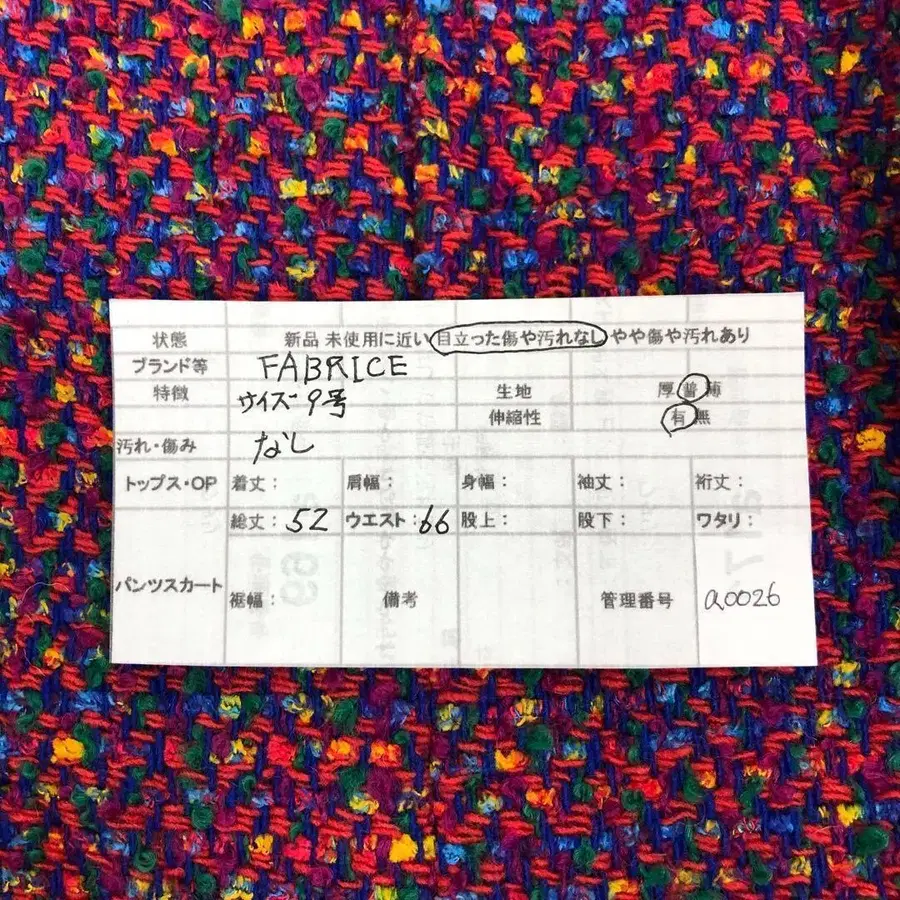 状態 新品 未使用に近い 目立った傷や汚れなし やや傷や汚れあり
ブランド等 FABRICE
特徴 サイズ 9号 生地 厚 普 薄
伸縮性 有 無
汚れ・傷み なし
トップス・OP 着丈： 肩幅： 身幅： 袖丈： 裄丈：
総丈：52 ウエスト：66 股上： 股下： ワタリ：
パンツスカート
裾幅： 備考 管理番号 a0026